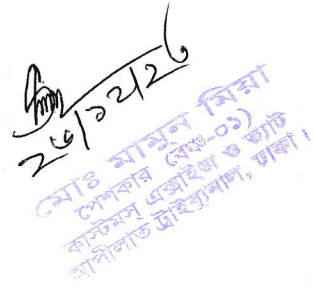 ২৩/১২/২৫
মোঃ মামুন মিয়া
পেশকার (বেঞ্চ-০১)
কাস্টমস্ এক্সাইজ ও ভ্যাট
আপীলাত ট্রাইব্যুনাল, ঢাকা।